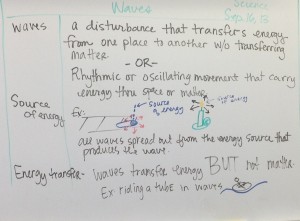 Waves
Science
Waves
a disturbance that transfers energy
from one place to another w/o transferring
matter
-OR-
Rhythmic or oscillating movement that carry
energy thru space or matter.
Source of energy
Ex:
source of energy
all waves spread out from the energy source that
produces the wave.
Energy transfer- Waves transfer energy BUT not matter.
Ex riding a tube in waves